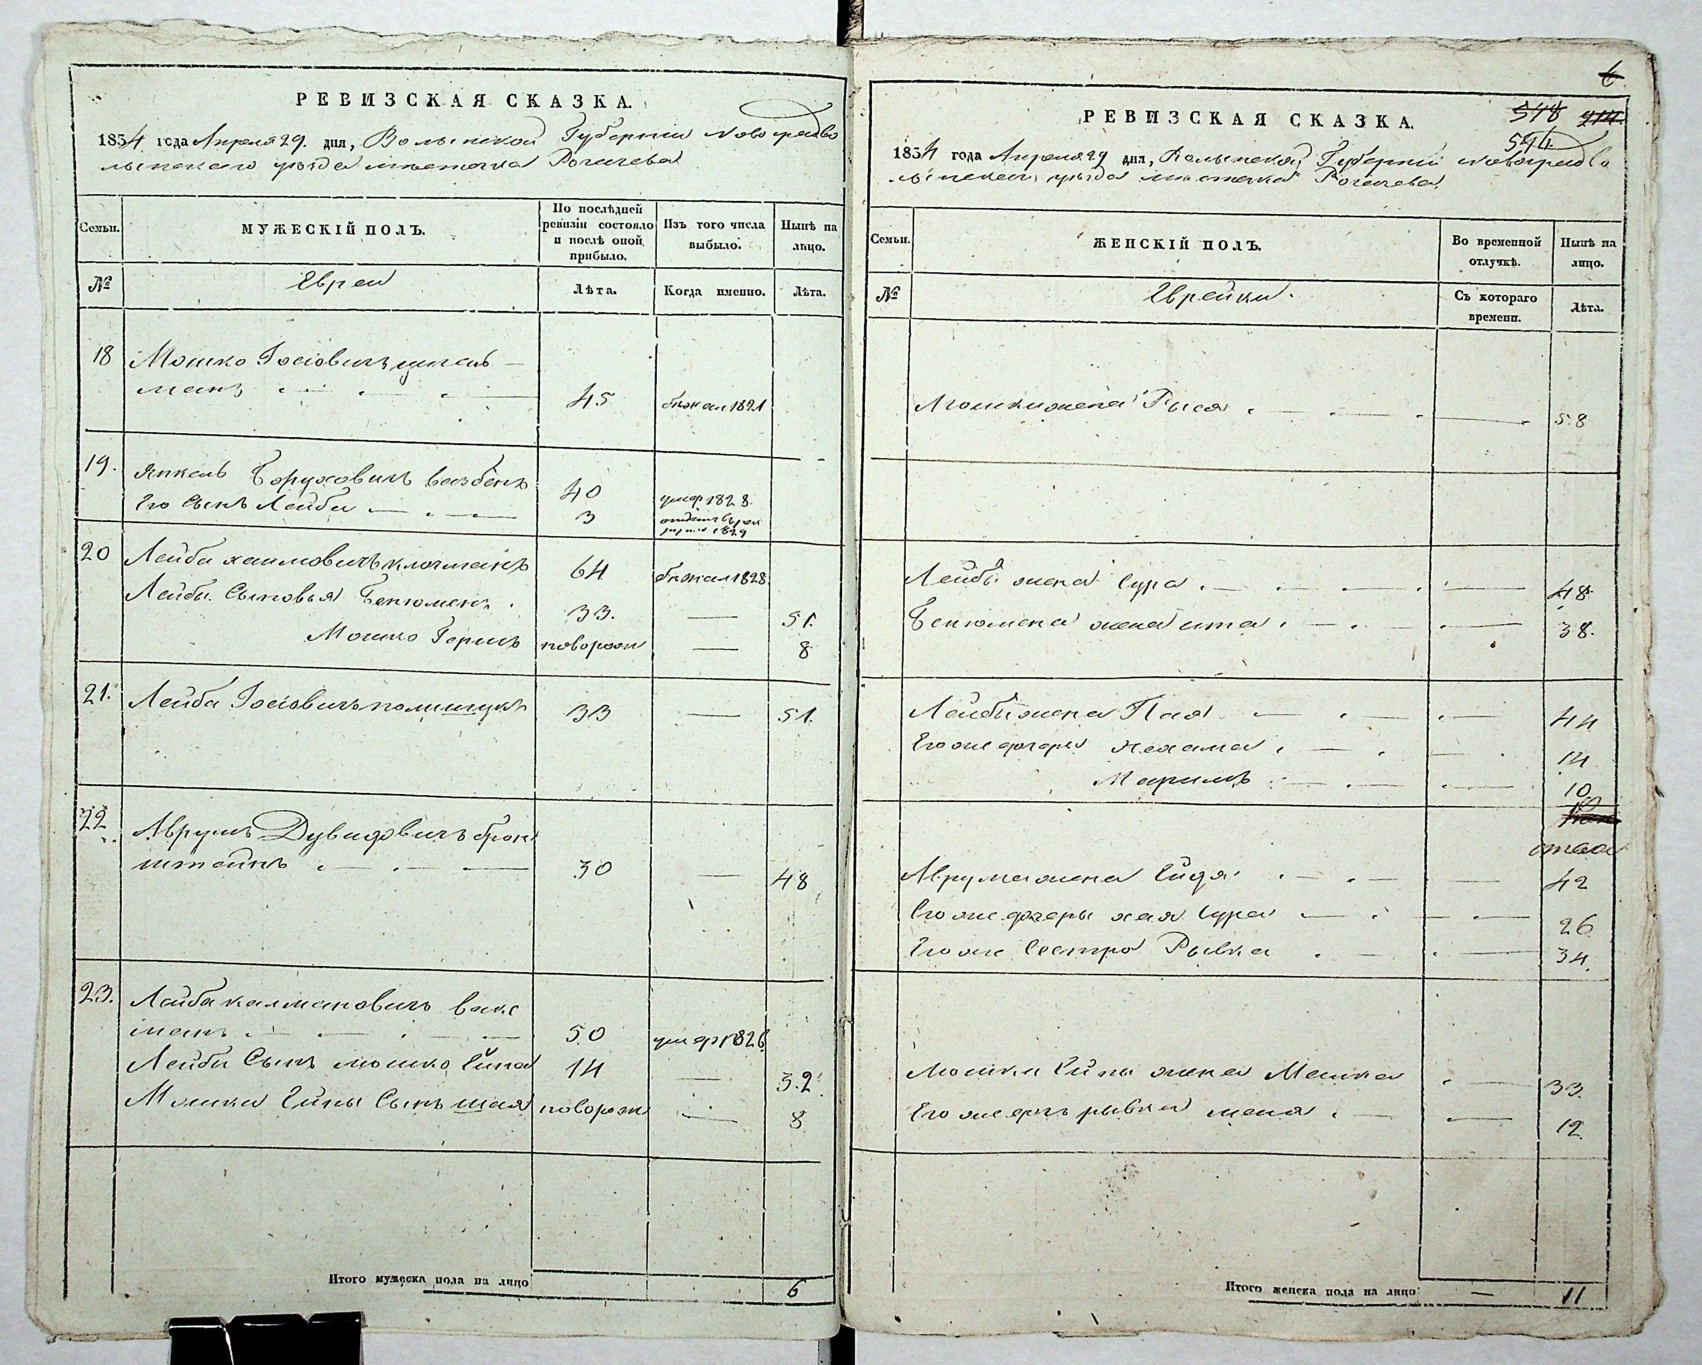 РЕВИЗСКАЯ СКАЗКА.
1834 года Апреля 29 дня, Волынской Губернiи Новоградво
лынскаго уѣзда мѣстечка Рогачева
Семьи.
МУЖЕСКIЙ ПОЛЪ.
По послѣдней ревизiи состояло и послѣ оной прибыло.
Изъ того числа выбыло.
Нынѣ на лицо.
№
Евреи
Лѣта.
Когда именно.
Лѣта.
18 Мошко Iосiовичъ
манъ 45 бѣжал 1821
19. Янкель Боруховичъ 40 умер 1828.
Его Сынъ Лейба 3 1829
20 Лейба Хаимовичъ 64 бѣжал 1828
Лейбы Сыновья Бенюмен 33. 51.
Мошко Гершъ новорож 8
21. Лейба Iосiовичъ 33 51.
22 Аврумъ Дувидовичъ брон
штейнъ 30 48
23. Лейба Калмановичъ вакс
манъ 50 умер 1826
Лейбы Сынъ Мошко Сина 14 32.
Мошки Сины Сынъ шая новорож 8
Итого мужеска пола на лицо 6
6
РЕВИЗСКАЯ СКАЗКА.
548
1834 года Апреля 29 дня, Волынской Губернiи Новоградво
лынскаго уѣзда мѣстечка Рогачева
Семьи.
ЖЕНСКIЙ ПОЛЪ.
Во временной отлучкѣ.
Нынѣ на лицо.
№
Еврейки.
Съ котораго времени.
Лѣта.
Мошки жена Рыся 58
Лейбы жена Сура 48
Бенюмена жена ита 38.
Лейбы жена Пая 44
Его же дочери Нехама 14
Мариямъ 10
Аврума жена 42
Его же дочеры хая Сура 26
Его же Сестра Рывка 34.
Мошки Сины жена Малка 33.
Его же дочь рывка 12
Итого женска пола на лицо 11